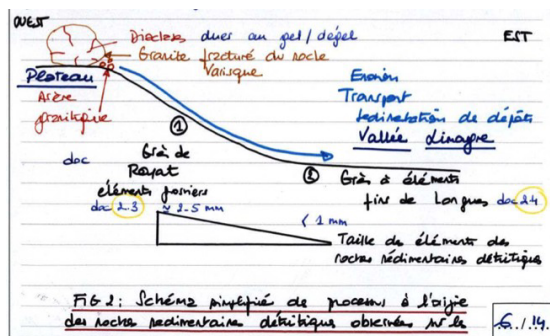 OUEST
EST
Diaclases dues au gel/dégel
Granite fracturé du socle
Varisque
Plateau
Arène
granitique
Erosion
Transport
sédimentation de dépôts
Vallée Limagne
①
②
doc
Grès de
Royat
éléments grossiers
doc 2.3
≈ 2-5 mm
Grès à éléments
fins de Longues doc 2.4
< 1 mm
Taille des éléments des
roches sédimentaires détritiques
FIG 2: Schéma simplifié de processus à l'origine
des roches sédimentaires détritiques observées sur le
6./.14